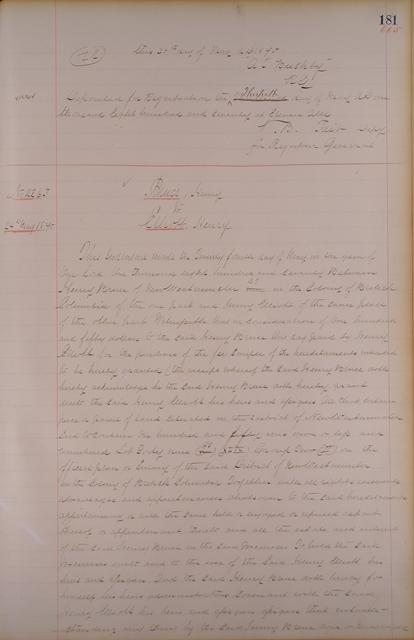 181
665
this 30th day of May A.D. 1870
A. T. Bushby
Deposited for Registration the Thirtieth day of May AD one
thousand Eight hundred and Seventy at Eleven
for Registrar General
Henry
to
Elliott, Henry
24th May 1870
This Indenture made the Twenty fourth day of May in the year of
Our Lord One Thousand eight hundred and Seventy Between
Henry of New Westminster in the Colony of British
Columbia of the one part and Henry Elliott of the same place
of the other part Witnesseth that in consideration of One hundred
and fifty dollars to the said Henry this day paid by Henry
Elliott for the purchase of the fee simple of the hereditaments intended
to be hereby granted (the receipt whereof the said Henry doth
hereby acknowledge) he the said Henry doth hereby grant
unto the said Henry Elliott his heirs and assigns All that certain
piece or parcel of land situated in the District of New Westminster
Said to contain One hundred and fifty acres more or less and
numbered Lot Group Two on the
official plan or Survey of the said District of New Westminster
in the Colony of British Columbia Together with all rights easements
advantages and appurtenances whatsoever to the said hereditaments
appertaining or with the same held or enjoyed or reputed as part
thereof or appurtenant thereto and all the estate and interest
of the said Henry in the said premises To hold the said
premises unto and to the use of the said Henry Elliott his
heirs and assigns And the said Henry doth hereby for
himself his heirs administrators covenant with the said
Henry Elliott his heirs and assigns that notwith-
-standing any by the said Henry done or